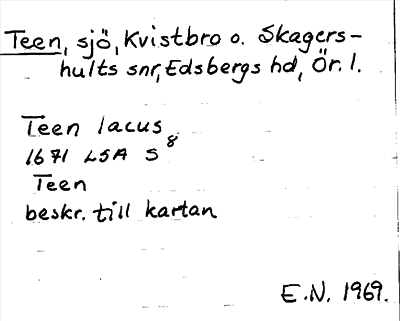 Teen, sjö, Kvistbro o. Skagers-
hults snr, Edsbergs hd, Ör. l.
Teen lacus
1671 LSA S8
Teen
beskr. till kartan
E.N. 1969.